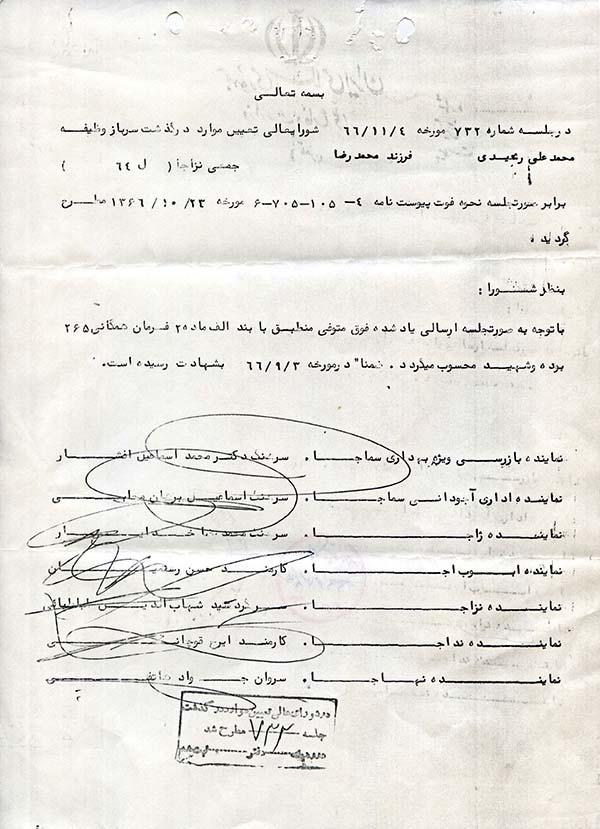 بسمه تعالی
در جلسه شماره ۷۳۲ مورخه ۶۶/۱۱/۴ شورایعالی تعیین موارد درگذشت سرباز وظیفه
محمد علی فرزند محمد رضا جمعی نزاجا ( ل ۶۴ )
برابر صورتجلسه نحوه فوت پیوست نامه ۴-۱۰۵-۷۰۵-۶ مورخه ۱۳۶۶/۱۰/۲۳ مطرح
گردید .
بنظر شورا :
با توجه به صورتجلسه ارسالی یاد شده فوق متوفی منطبق با بند الف ماده ۲ فرمان همگانی ۲۶۵
بوده و شهید محسوب میگردد . ضمنا" در مورخه ۶۶/۹/۳ بشهادت رسیده است.
نماینده بازرسی ویژه بهداری سماجا . سرهنگ دکتر محمد اسماعیل افشار
نماینده اداری آجودانی سماجا . سرهنگ اسماعیل
نماینده ژاجا . سرهنگ محمد
نماینده اجا . کارمند حسن
نماینده نزاجا . سرگرد سید شهاب الدین طباطبائی
نماینده نداجا . کارمند
نماینده نهاجا . سروان جواد
در شورای عالی تعیین موارد درگذشت
جلسه ۷۳۲ مطرح شد